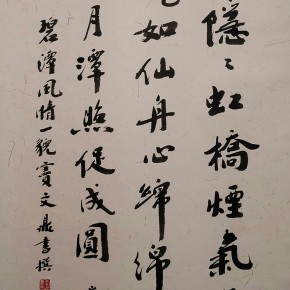 隱〻虹橋煙氣
如仙舟心綿綿
月潭照促成圓
碧潭風情一貌 賓文鼎書撰